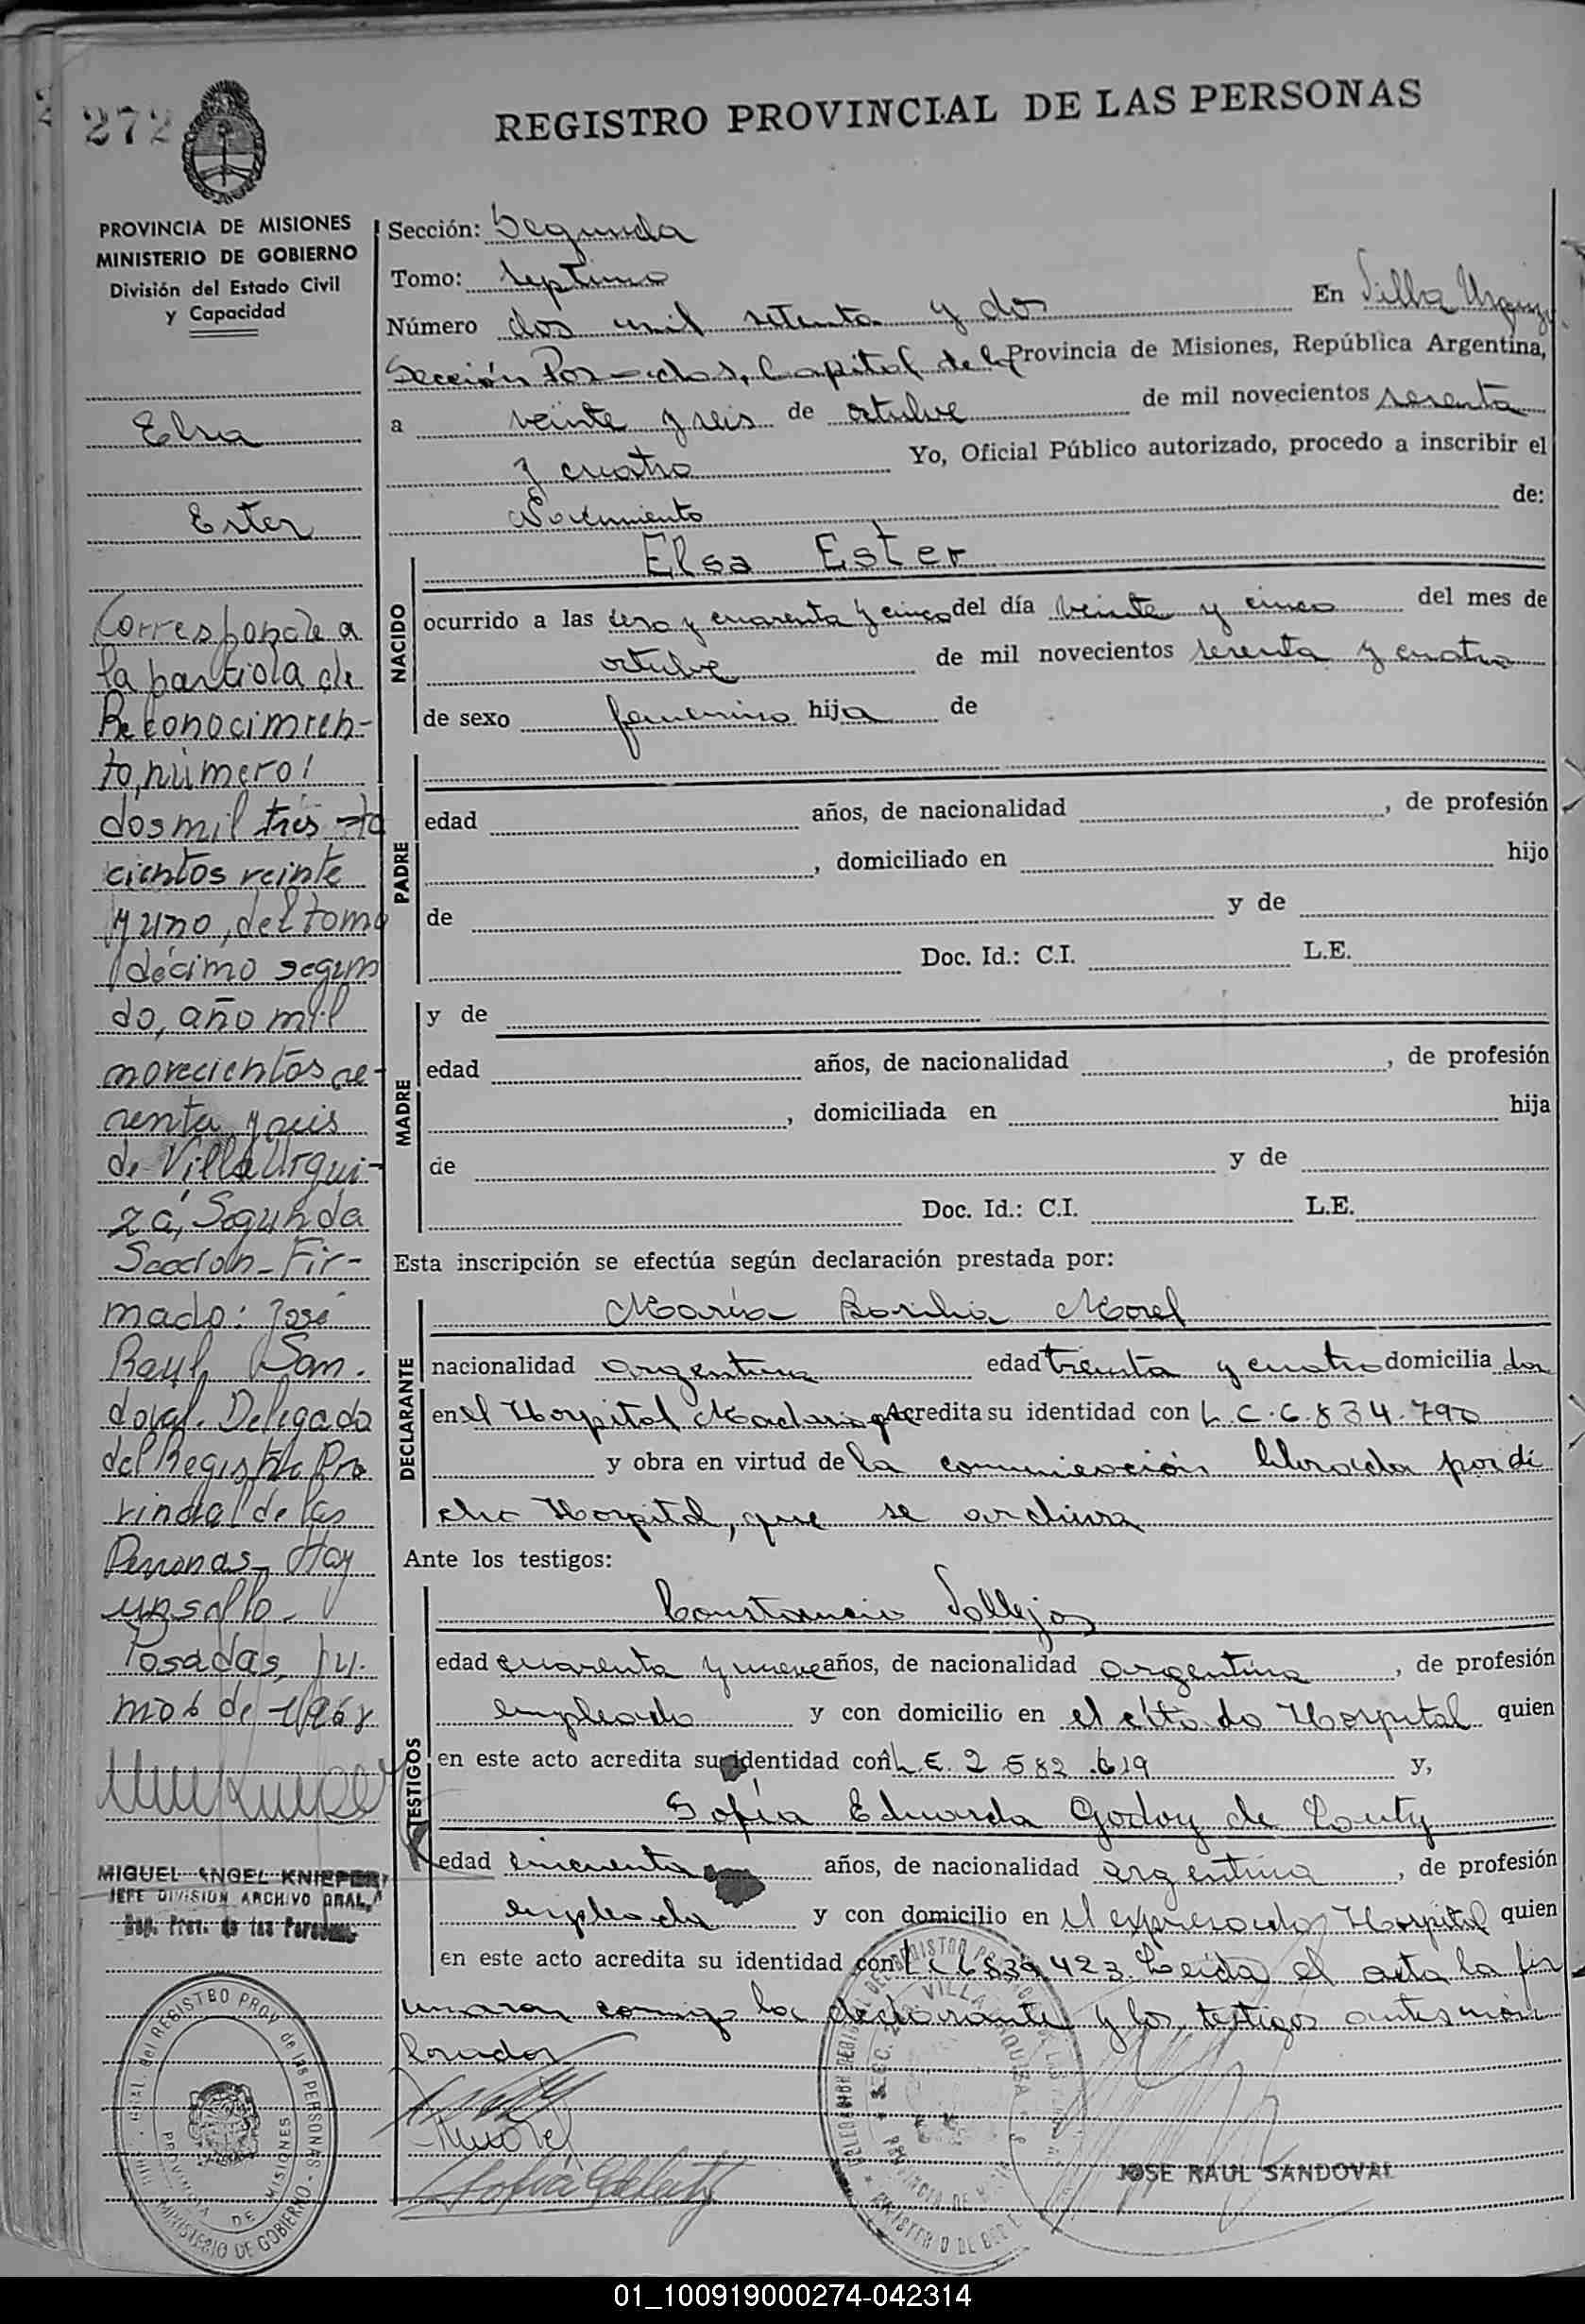 272
REGISTRO PROVINCIAL DE LAS PERSONAS
PROVINCIA DE MISIONES
MINISTERIO DE GOBIERNO
División del Estado Civil
y Capacidad
Elsa
Ester
Corresponde a
la partida de
Reconocimien-
to, número:
dos mil tres
cientos veinte
y uno, del tomo
décimo segun
do, año mil
novecientos se-
senta y seis
de Villa Urqui-
za, Segunda
Sección - Fir-
mado: José
Raul San-
doval. Delegado
del Registro Pro
vincial de las
Personas - Hay
un sello -
Posadas,
de 1968
MIGUEL ANGEL KNIEPER
JEFE DIVISION ARCHIVO GRAL.
Reg. Prov. de las Personas
Sección: Segunda
Tomo: septimo
Número dos mil setenta y dos En Villa Urquiza
Sección Posadas, Capital de la Provincia de Misiones, República Argentina,
a veinte y seis de octubre de mil novecientos sesenta
y cuatro Yo, Oficial Público autorizado, procedo a inscribir el
Nacimiento de:
NACIDO
Elsa Ester
ocurrido a las cero y cuarenta y cinco del día veinte y cinco del mes de
octubre de mil novecientos sesenta y cuatro
de sexo femenino hija de
PADRE
edad años, de nacionalidad , de profesión
, domiciliado en hijo
de y de
Doc. Id.: C.I. L.E.
MADRE
y de
edad años, de nacionalidad , de profesión
, domiciliada en hija
de y de
Doc. Id.: C.I. L.E.
Esta inscripción se efectúa según declaración prestada por:
DECLARANTE
María Morel
nacionalidad argentina edad treinta y cuatro domicilia da
en el Hospital Madariaga Acredita su identidad con L.C. 6.834.790
y obra en virtud de la comunicación librada por di
cho Hospital, que se archiva
Ante los testigos:
TESTIGOS
Constancio Vallejos
edad cuarenta y nueve años, de nacionalidad argentina, de profesión
empleado y con domicilio en el citado Hospital quien
en este acto acredita su identidad con L.E. 2 582.619 y,
Sofía Eduarda Godoy de Louty
edad cincuenta años, de nacionalidad argentina, de profesión
empleada y con domicilio en el expresado Hospital quien
en este acto acredita su identidad con L.C 6839.423. Leída el acta la fir
maron conmigo la declarante y los testigos antes men
cionados
JOSE RAUL SANDOVAL
DEL REGISTRO PROV. de las PERSONAS
MINISTERIO DE GOBIERNO
PROVINCIA DE MISIONES
VILLA URQUIZA
01_100919000274-042314